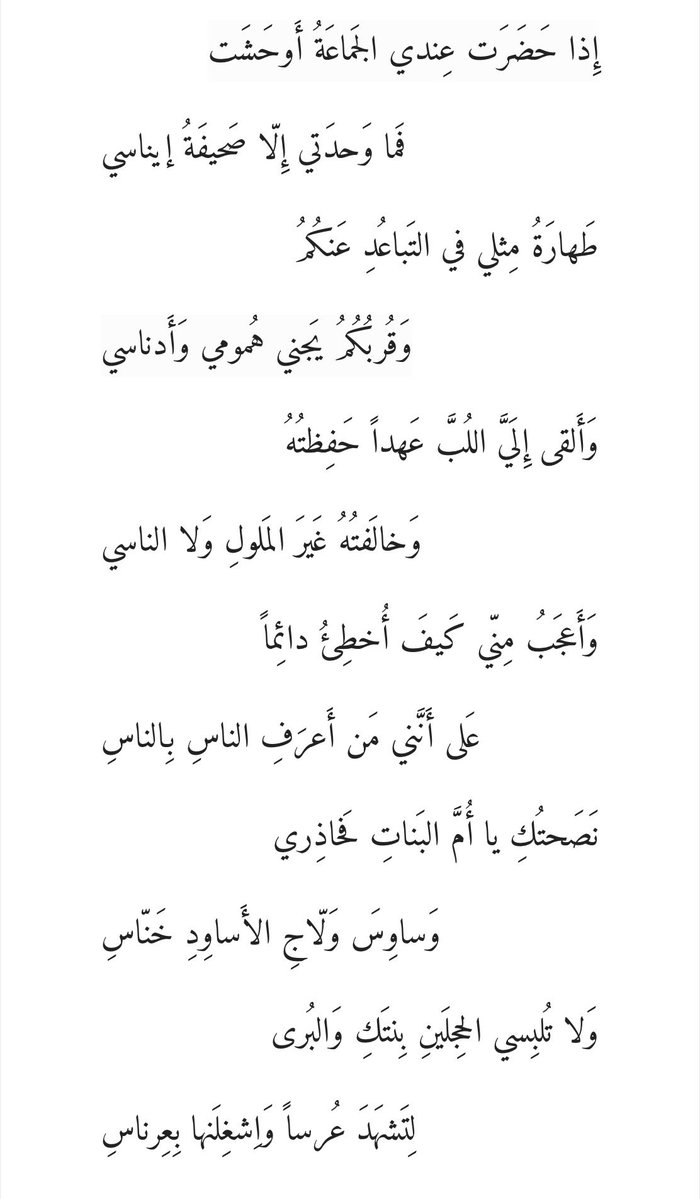 إِذا حَضَرَت عِندي الجَماعَةُ أَوحَشَت
فَما وَحدَتي إِلّا صَحيفَةُ إيناسي
طَهارَةُ مِثلي في التَباعُدِ عَنكُمُ
وَقُربُكُمُ يَجني هُمومي وَأَدناسي
وَأَلقى إِلَيَّ اللُبَّ عَهداً حَفِظتُهُ
وَخالَفتُهُ غَيرَ المَلولِ وَلا الناسي
وَأَعجَبُ مِنّي كَيفَ أُخطِئُ دائِماً
عَلى أَنَّني مَن أَعرَفِ الناسِ بِالناسِ
نَصَحتُكِ يا أُمَّ البَناتِ فَحاذِري
وَساوِسَ وَلّاجِ الأَساوِدِ خَنّاسِ
وَلا تُلبِسي الحِجلَينِ بِنتَكِ وَالبُرى
لِتَشهَدَ عُرساً وَاِشغِلَنها بِعِرناسِ